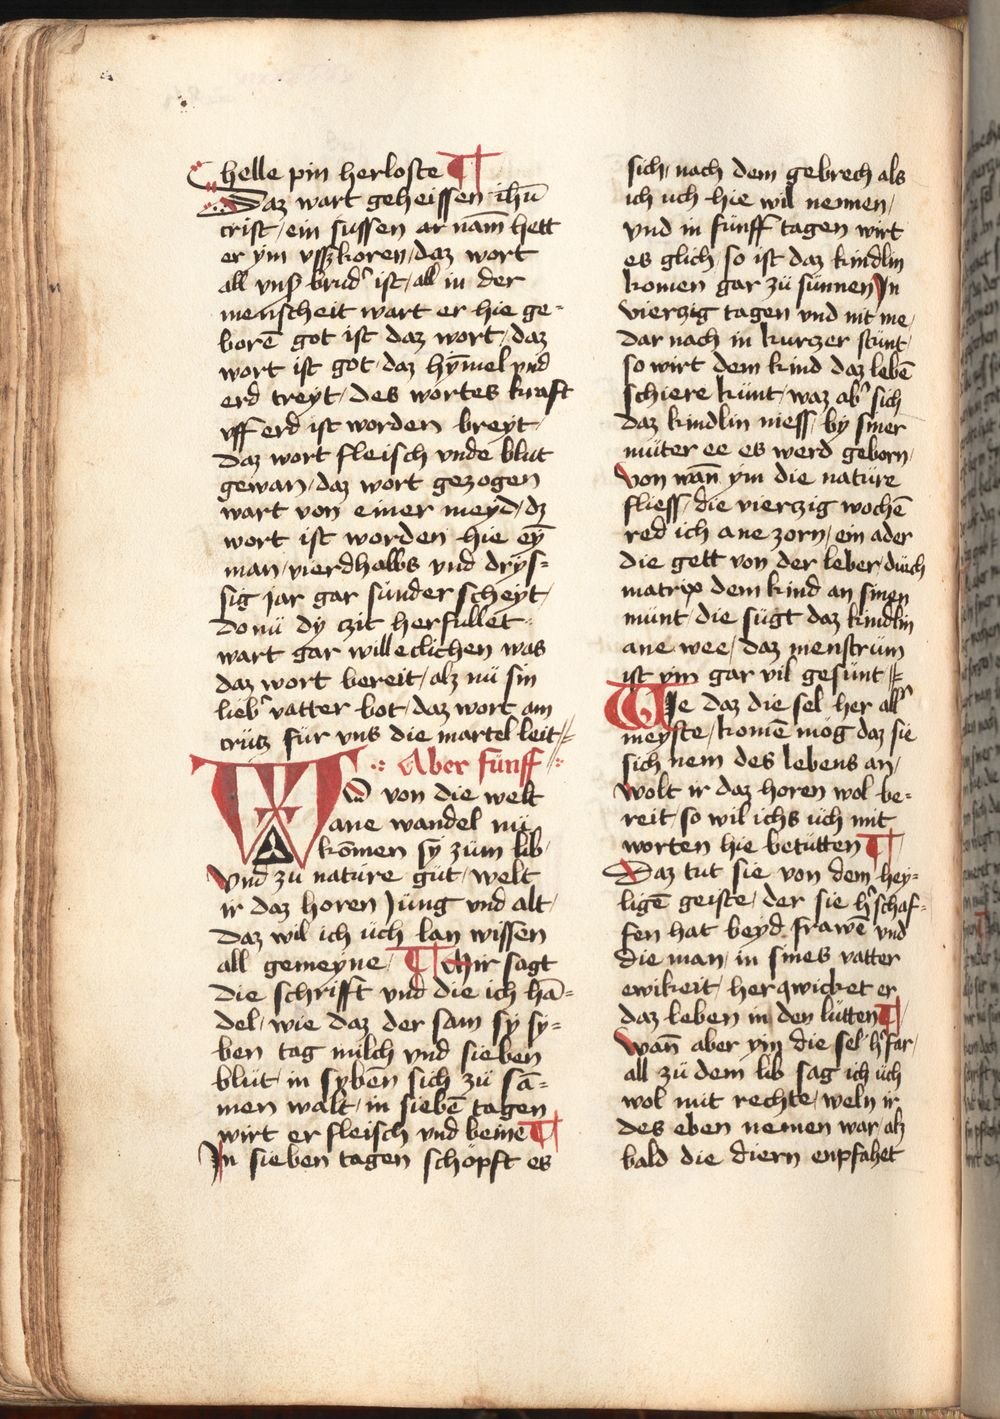 helle pin herloste ¶
Daz wart geheissen ihū
crist / ein sussen ar nam̄ hett
er ym vßzkoren / daz wort
all vnß brud' ist / all in der
menscheit wart er hie ge-
borē got ist daz wort / daz
wort ist got / daz hȳmel vnd
erd treyt / des wortes kraft
vff erd ist worden breyt /
daz wort fleisch vnde blut
gewan / daz wort gezogen
wart von einer meyd / dz
wort ist worden hie eȳ
man / vierdhalbs vnd drys-
sig jar gar sünder scheyt /
do nü dy czit herfullet
wart gar willeclichen was
daz wort bereit / alz nü sin
lieb' vatter bot / daz wort am
crütz für vns die martel leit //
Aber fünff
WO von die welt
ane wandel nü
kōmen sy züm lib /
vnd zü nature güt / welt
ir daz horen jüng vnd alt /
daz wil ich üch lan wissen
all gemeyne / ¶ Mir sagt
die schrifft vnd die ich hā-
del / wie daz der sam sy sy-
ben tag milch vnd sieben
blüt / in sybēn sich zü sā-
men walt / in siebē tagen
wirt er fleisch vnd beine ¶
In sieben tagen schöpft es
sich / nach dem gebrech als
ich uch hie wil nennen /
vnd in fünff tagen wirt
es glich / so ist daz kindlin
komen gar zü sünnen In
vierzig tagen vnd nit me /
dar nach in kurczer stünt /
so wirt dem kind daz lebē
schiere künt / waz ab' sich
daz kindlin niess / by siner
müter ee es werd geborn /
von wan̄ ym die natüre
fliess / die vierzig wochē
red ich ane zorn / ein ader
die gett von der leber / dürch
matrix dem kind an sinen
münt / die sügt daz kindlin
ane wee / daz menstrüm
ist ym gar vil gesünt //
Wie daz die sel her all'
meyste / komē mög daz sie
sich nem des lebens an /
wolt ir daz horen wol be-
reit / so wil ichs üch mit
worten hie betütten ¶
Daz tut sie von dem hey-
ligē geiste / der sie h'schaf-
fen hat beyd frawē vnd
die man / in sines vatter
ewikeit / herqwicket er
daz leben in den lütten ¶
wan̄ aber ym die sel h'far /
all zü dem lib sag ich üch
wol mit rechte / weln ir
des eben nemen war alz
bald die diern enpfahet